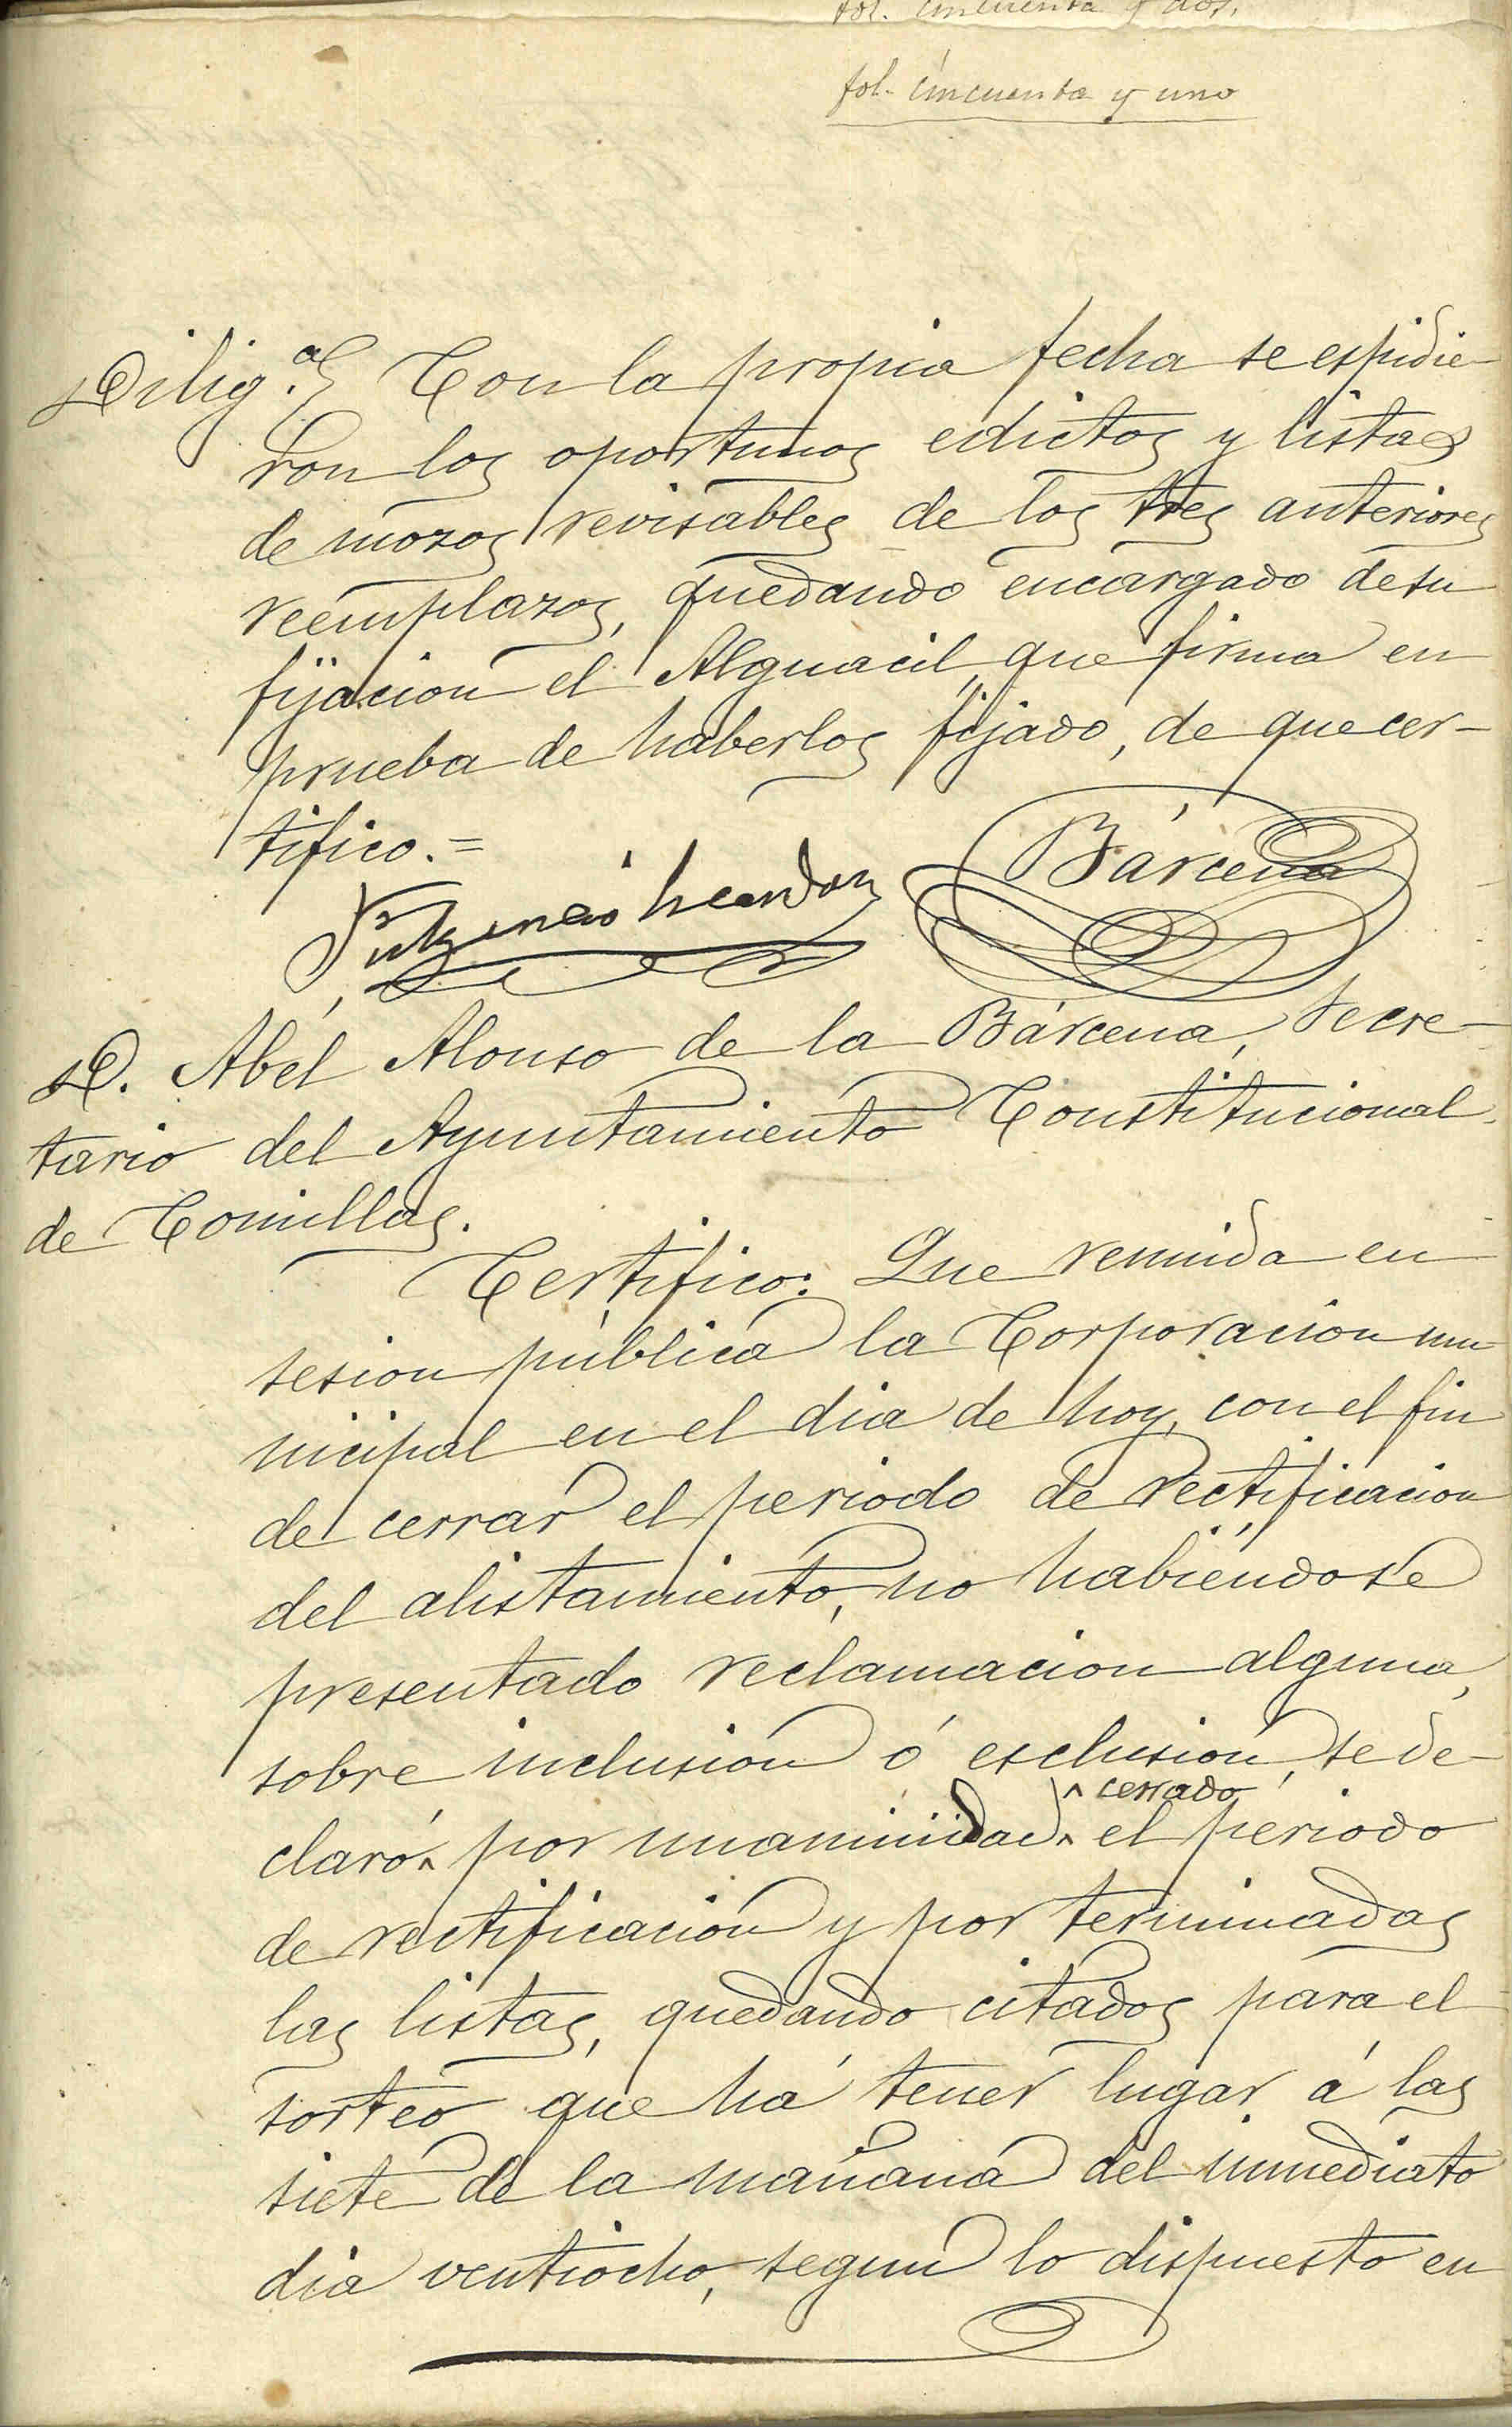 fol. cincuenta y dos.
fol. cincuenta y uno
Dilig.ª } Con la propia fecha se espidie-
ron los oportunos edictos y listas
de mozos revisables de los tres anteriores
reemplazos, quedando encargado de su
fijacion el Alguacil, que firma en
prueba de haberlos fijado, de que cer-
tifico.=
Bárcena
D. Abel Alonso de la Bárcena, Secre-
tario del Ayuntamiento Constitucional
de Comillas.
Certifico: Que reunida en
sesion pública la Corporacion mu-
nicipal en el dia de hoy, con el fin
de cerrar el periodo de rectificacion
del alistamiento, no habiéndose
presentado reclamacion alguna,
sobre inclusion ó esclusion, se de-
^ cerrado
claró^ por unanimidad^ el periodo
de rectificacion y por terminadas
las listas, quedando citados para el
sorteo que há tener lugar á las
siete de la mañana del inmediato
dia ventiocho, segun lo dispuesto en